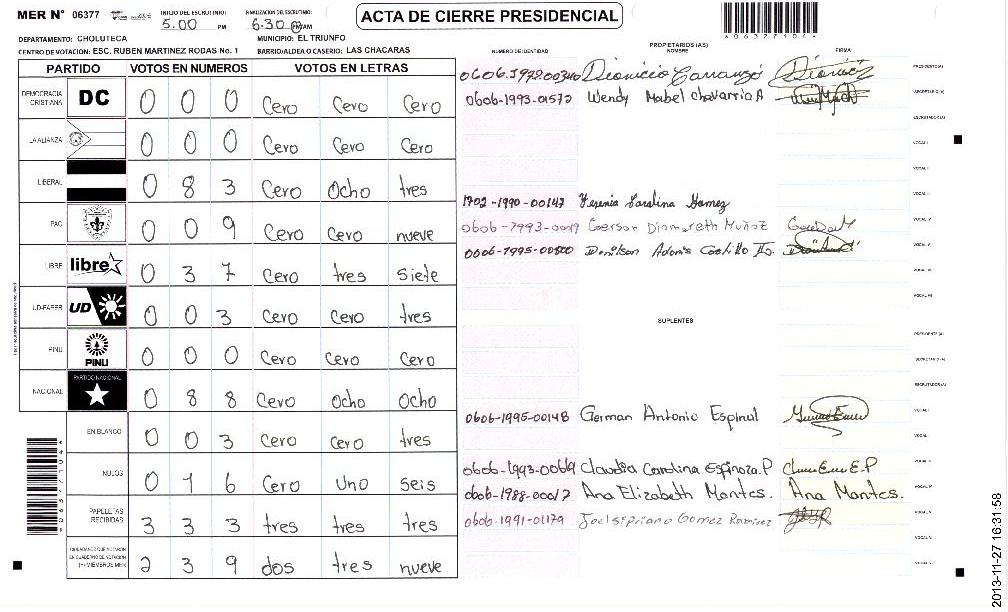 MER N° 06377
INICIO DEL ESCRUTINIO: 5.00 PM
FINALIZACION DEL ESCRUTINIO: 6.30 PM/AM
ACTA DE CIERRE PRESIDENCIAL
*063771044*
DEPARTAMENTO: CHOLUTECA
MUNICIPIO: EL TRIUNFO
CENTRO DE VOTACION: ESC. RUBEN MARTINEZ RODAS No. 1
BARRIO/ALDEA O CASERIO: LAS CHACARAS
PARTIDO VOTOS EN NUMEROS VOTOS EN LETRAS
DEMOCRACIA CRISTIANA DC 0 0 0 Cero Cero Cero
LA ALIANZA 0 0 0 Cero Cero Cero
LIBERAL 0 8 3 Cero Ocho tres
PAC 0 0 9 Cero Cero nueve
LIBRE libre 0 3 7 Cero tres Siete
UD-FAPER UD 0 0 3 Cero Cero tres
PINU PINU 0 0 0 Cero Cero Cero
NACIONAL PARTIDO NACIONAL 0 8 8 Cero Ocho Ocho
EN BLANCO 0 0 3 Cero Cero tres
NULOS 0 1 6 Cero Uno seis
PAPELETAS RECIBIDAS 3 3 3 tres tres tres
CIUDADANOS QUE VOTARON EN CUADERNO DE VOTACION (+) MIEMBROS MER 2 3 9 dos tres nueve
NUMERO DE IDENTIDAD PROPIETARIOS (AS) NOMBRE FIRMA
Dionicio Carranza PRESIDENTE(A)
0606-1993-01572 Wendy Mabel Chavarria A SECRETARIO(A)
ESCRUTADOR(A)
VOCAL I
VOCAL II
VOCAL III
1702-1990-00147 Yesenia Carolina Gomez
0606-1993-00019 Gerson Diomareth Muñoz VOCAL IV
0606-1995-00800 Denilson Adonis Castillo VOCAL V
VOCAL VI
VOCAL VII
SUPLENTES
PRESIDENTE (A)
SECRETARIO (A)
ESCRUTADOR(A)
0606-1995-00148 German Antonio Espinal VOCAL I
VOCAL II
0606-1993-0069 Claudia Carolina Espinoza.P VOCAL III
0606-1988-00012 Ana Elizabeth Montes. Ana Montes. VOCAL IV
0606-1991-01179 Joel sipriano Gomez Ramirez VOCAL V
VOCAL VI
VOCAL VII
2013-11-27 16:31:58